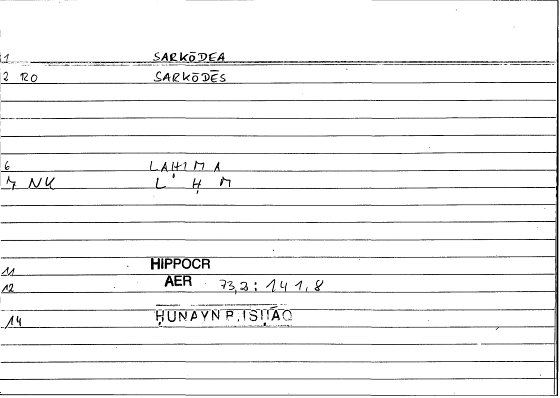 1 SARKŌDEA
2 RO SARKŌDĒS
6 LAḤIMA
7 NK L Ḥ M
11 HIPPOCR
12 AER 73,3: 141,8
14 ḤUNAYN B. ISḤĀQ